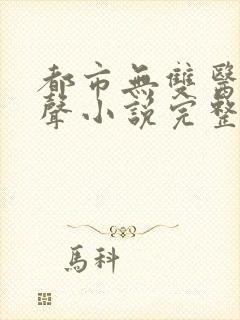 都市無雙醫
聲小說完整
馬科